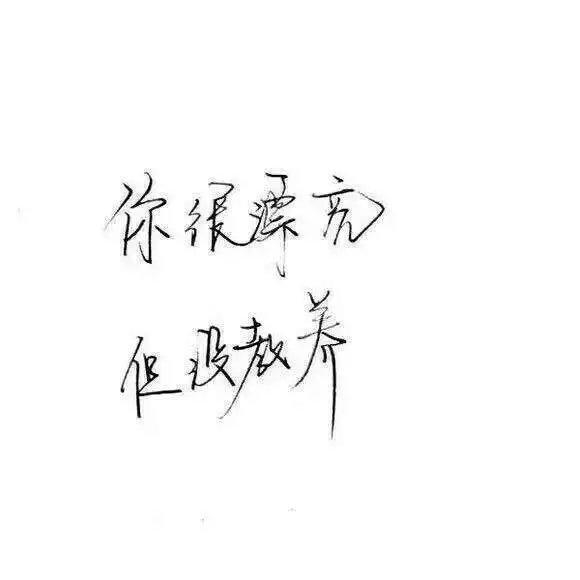 你很漂亮
但没教养